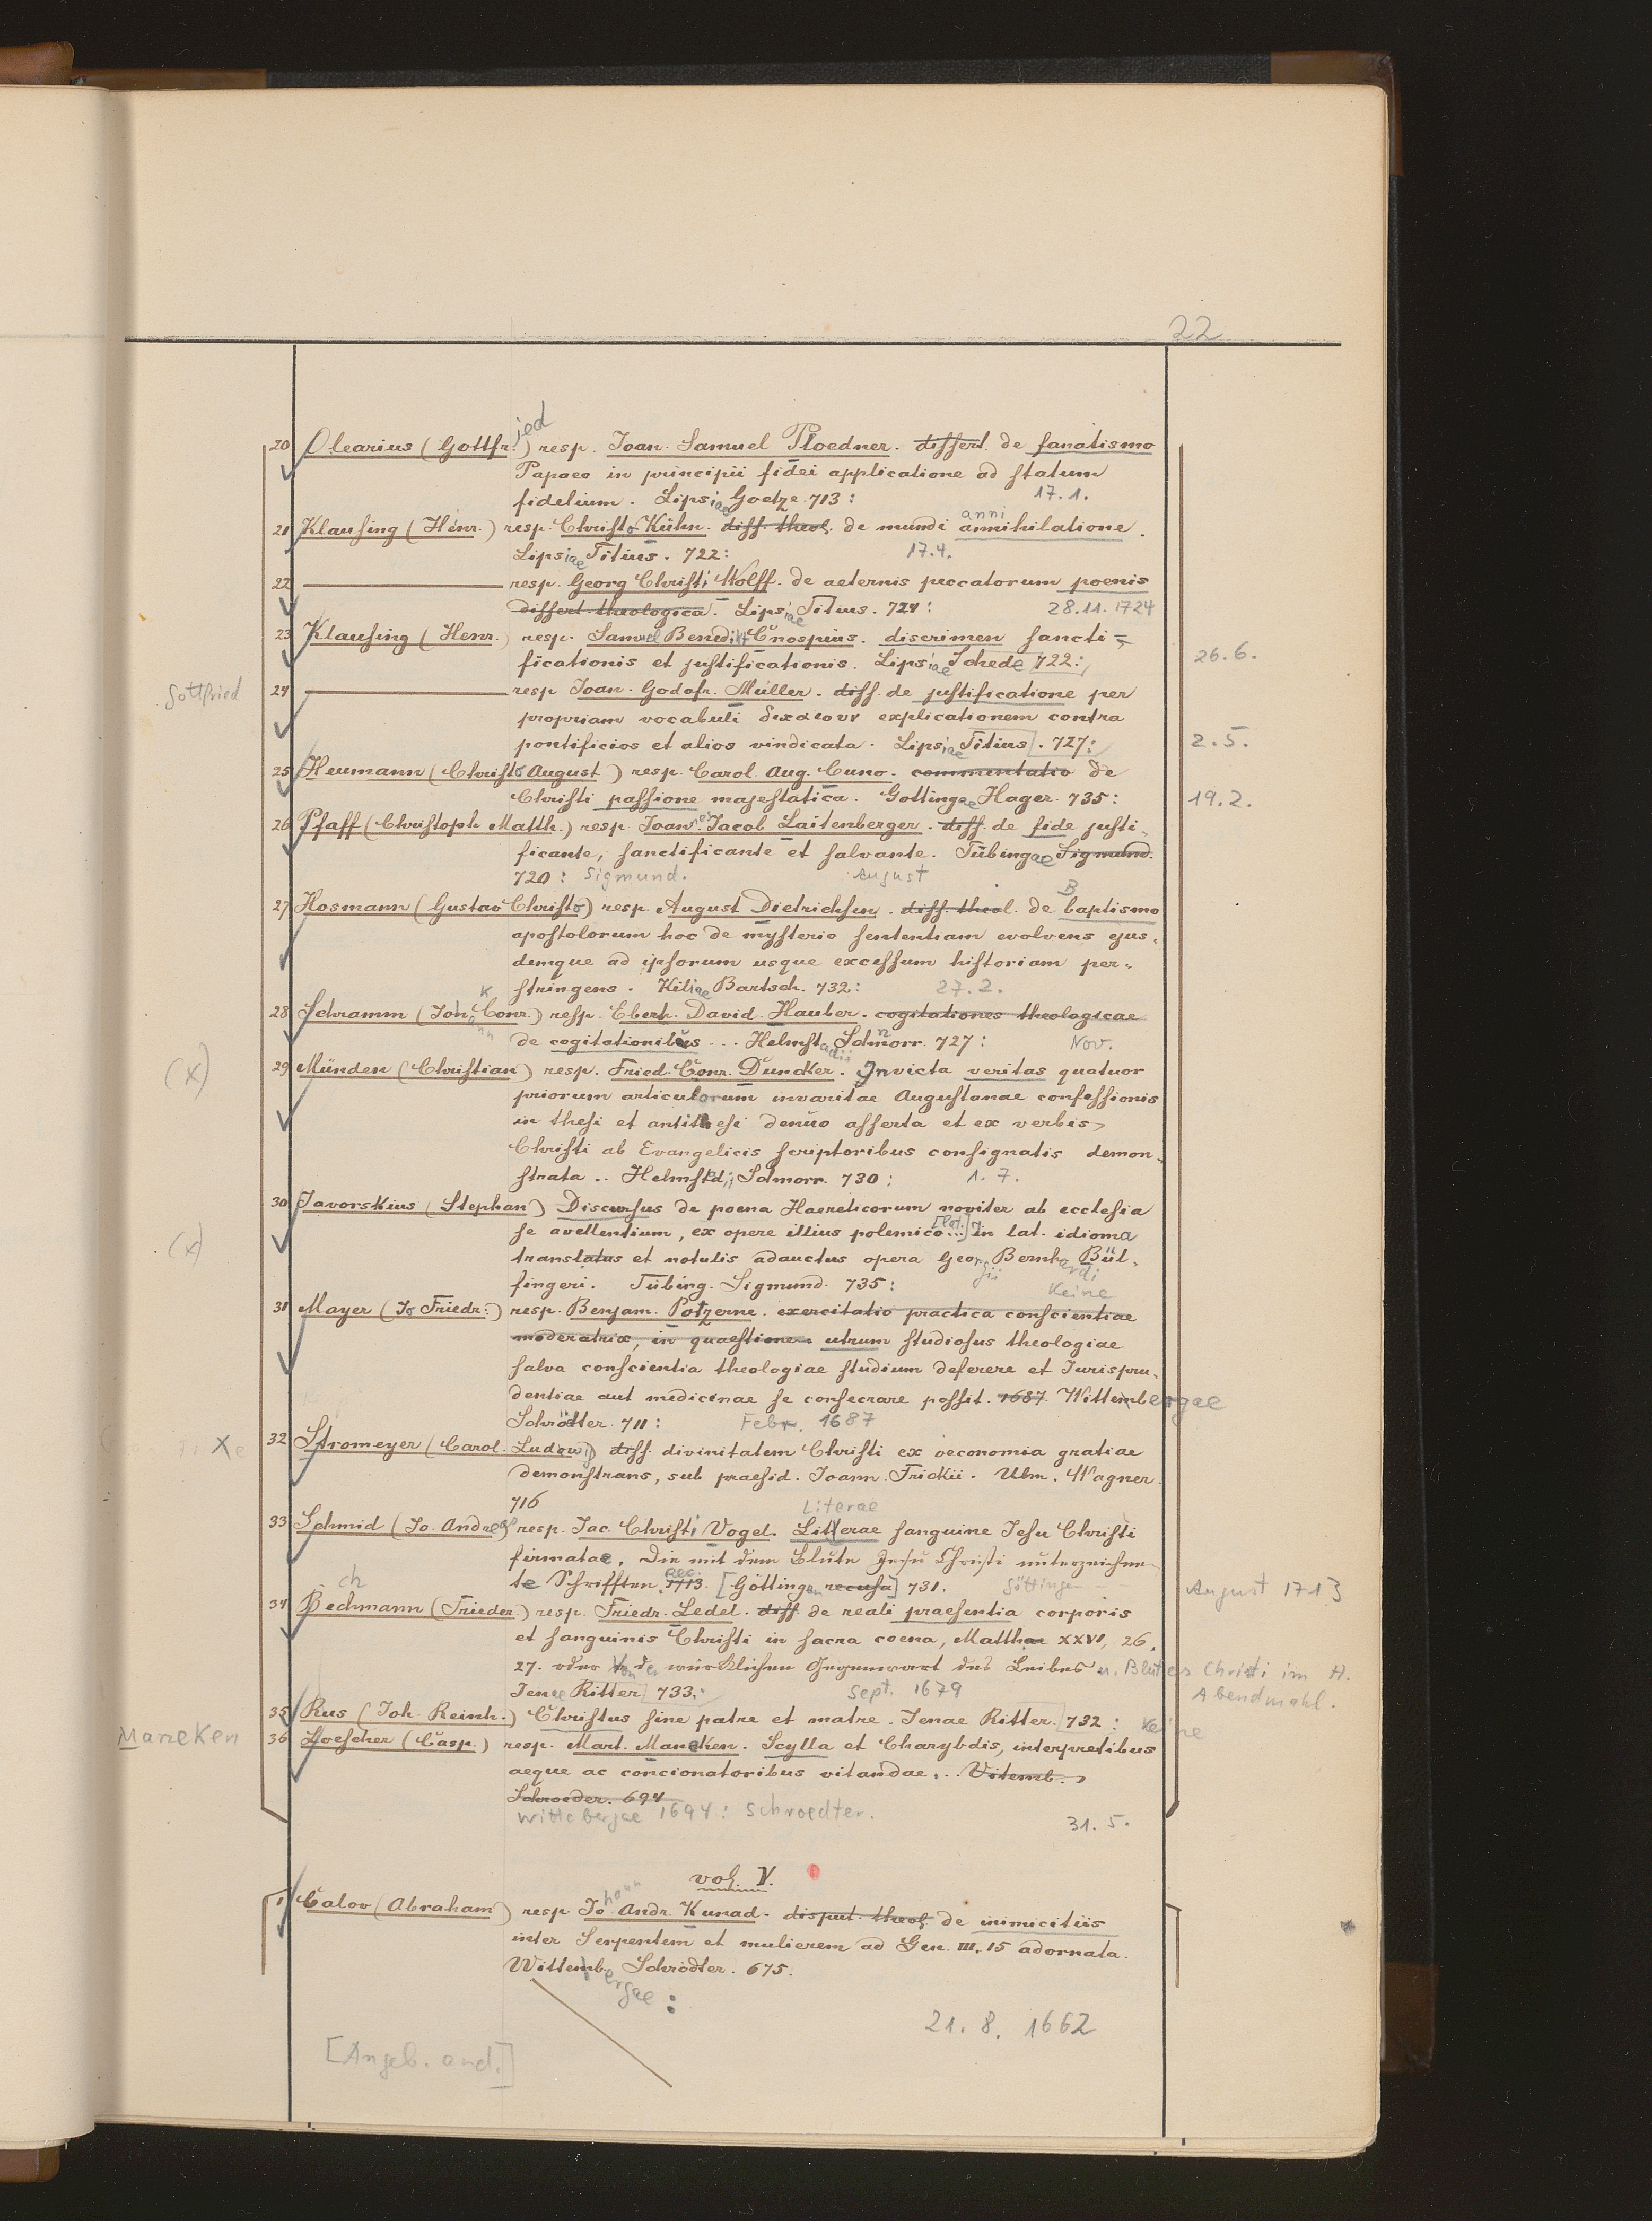 22
20 Olearius (Gottfried) resp. Joan. Samuel Ploedner. dissert. de fanatismo
Papaeo in principii fidei applicatione ad statum
fidelium. Lipsiae Goetze. 713: 17.1.
21 Klausing (Henr.) resp. Christo Kühn. diss. theol. de mundi annihilatione.
anni
Lipsiae Titius. 722: 17.4.
22 resp. Georg Christi Wolff. de aeternis peccatorum poenis
dissert. theologica. Lipsiae Titius. 724: 28.11.1724
23 Klausing (Henr.) resp. Samuel Benedikt Cnospius. discrimen sancti=
ficationis et justificationis. Lipsiae Schede 722: 26.6.
Gottfried 24 resp Joan. Godofr. Müller. diss. de justificatione per
propriam vocabuli δικαιουν explicationem contra
pontificios et alios vindicata. Lipsiae Titius. 727: 2.5.
25 Heumann (Christo August) resp. Carol. Aug. Cuno. commentatio de
Christi passione majestatica. Gottingae Hager. 735: 19.2.
26 Pfaff (Christoph Matth.) resp. Joannes Jacob Laitenberger. diss. de fide justi-
ficante, sanctificante et salvante. Tübingae Sigmund.
720: Sigmund. August
27 Hosmann (Gustav Christo) resp. August Dietrichsen. diss. theol. de baptismo
B
apostolorum hoc de mysterio sententiam evolvens ejus-
demque ad ipsorum usque excessum historiam per-
stringens. Kiliae Bartsch. 732: 27.2.
28 Schramm (Johann Conr.) resp. Eberh. David Hauber. cogitationes theologicae
K
de cogitationibus ... Helmstadii Schnorr. 727: Nov.
(x) 29 Münden (Christian) resp. Fried. Conr. Duncker. Invicta veritas quatuor
priorum articulorum invaritae Augustanae confessionis
in thesi et antithesi denuo asserta et ex verbis
Christi ab Evangelicis scriptoribus consignatis demon-
strata .. Helmstadii Schnorr. 730: 1.7.
30 Javorskius (Stephan) Discursus de poena Haereticorum noviter ab ecclesia
(x) se avellentium, ex opere illius polemico ... in lat. idioma
translatus et notulis adauctus opera Georgii Bernhardi Bül-
fingeri. Tübing. Sigmund. 735: Keine
31 Mayer (Jo Friedr.) resp. Benjam. Potzerne. exercitatio practica conscientiae
moderatrix, in quaestionem utrum studiosus theologiae
salva conscientia theologiae studium deserere et Jurispru-
dentiae aut medicinae se consecrare possit. 1687. Wittembergae
Schrödter. 711: Febr. 1687
X 32 Stromeyer (Carol. Ludewig) diss. divinitatem Christi ex oeconomia gratiae
demonstrans, sub praesid. Joann. Frickii. Ulm. Wagner.
716
33 Schmid (Jo. Andreas) resp. Jac. Christi Vogel. Litterae sanguine Jesu Christi
Literae
firmatae, Die mit dem Blute Jesu Christi unterzeichne-
te Schrifften. 1713. [Göttingen recusa] 731. Göttingen August 1713
rec.
34 Bechmann (Frieder.) resp. Friedr. Ledel. diss de reali praesentia corporis
ch
et sanguinis Christi in sacra coena, Matthae XXVI, 26,
27. oder Von der würcklichen Gegenwart des Leibes u. Blutes Christi im H.
Abendmahl.
Jenae Ritter 733: Sept. 1679
35 Rus (Joh. Reinh.) Christus sine patre et matre. Jenae Ritter. 732: Keine
Maneken 36 Loescher (Casp.) resp. Mart. Maneken. Scylla et Charybdis, interpretibus
aeque ac concionatoribus vitandae... Vitemb.
Schroeder. 694
Wittebergae 1694: Schroedter. 31.5.
vol. V.
1 Calov (Abraham) resp Johann Andr. Kunad. disput. theol. de inimicitiis
inter Serpentem et mulierem ad Gen. III, 15 adornata.
Wittembergae: Schrödter. 675.
21. 8. 1662
[Angeb. and.]